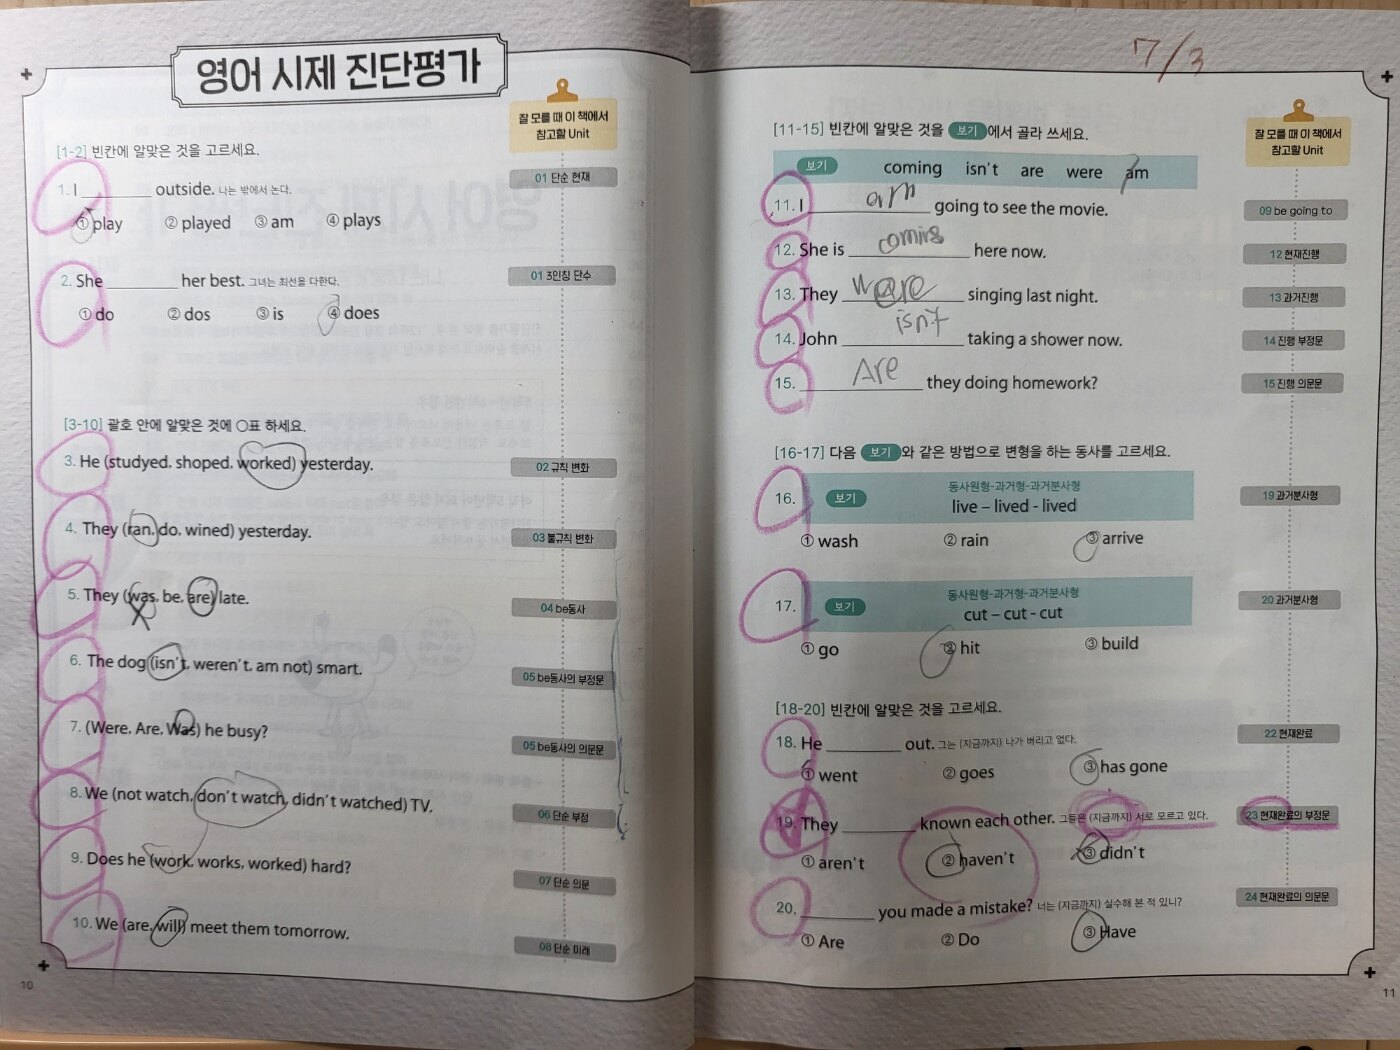 영어 시제 진단평가
잘 모를 때 이 책에서
참고할 Unit
[1-2] 빈칸에 알맞은 것을 고르세요.
1. I ________ outside. 나는 밖에서 논다.
01 단순 현재
① play ② played ③ am ④ plays
2. She ________ her best. 그녀는 최선을 다한다.
01 3인칭 단수
① do ② dos ③ is ④ does
[3-10] 괄호 안에 알맞은 것에 ○표 하세요.
3. He (studyed, shoped, worked) yesterday.
02 규칙 변화
4. They (ran, do, wined) yesterday.
03 불규칙 변화
5. They (was, be, are) late.
04 be동사
6. The dog (isn't, weren't, am not) smart.
05 be동사의 부정문
7. (Were, Are, Was) he busy?
05 be동사의 의문문
8. We (not watch, don't watch, didn't watched) TV.
06 단순 부정
9. Does he (work, works, worked) hard?
07 단순 의문
10. We (are, will) meet them tomorrow.
08 단순 미래
10
7/3
잘 모를 때 이 책에서
참고할 Unit
[11-15] 빈칸에 알맞은 것을 보기 에서 골라 쓰세요.
보기 coming isn't are were am
11. I am going to see the movie.
09 be going to
12. She is coming here now.
12 현재진행
13. They were singing last night.
13 과거진행
14. John isn't taking a shower now.
14 진행 부정문
15. Are they doing homework?
15 진행 의문문
[16-17] 다음 보기 와 같은 방법으로 변형을 하는 동사를 고르세요.
16. 보기 동사원형-과거형-과거분사형
live – lived - lived
19 과거분사형
① wash ② rain ③ arrive
17. 보기 동사원형-과거형-과거분사형
cut – cut - cut
20 과거분사형
① go ② hit ③ build
[18-20] 빈칸에 알맞은 것을 고르세요.
18. He ________ out. 그는 (지금까지) 나가 버리고 없다.
22 현재완료
① went ② goes ③ has gone
19. They ________ known each other. 그들은 (지금까지) 서로 모르고 있다.
23 현재완료의 부정문
① aren't ② haven't ③ didn't
20. ________ you made a mistake? 너는 (지금까지) 실수해 본 적 있니?
24 현재완료의 의문문
① Are ② Do ③ Have
11